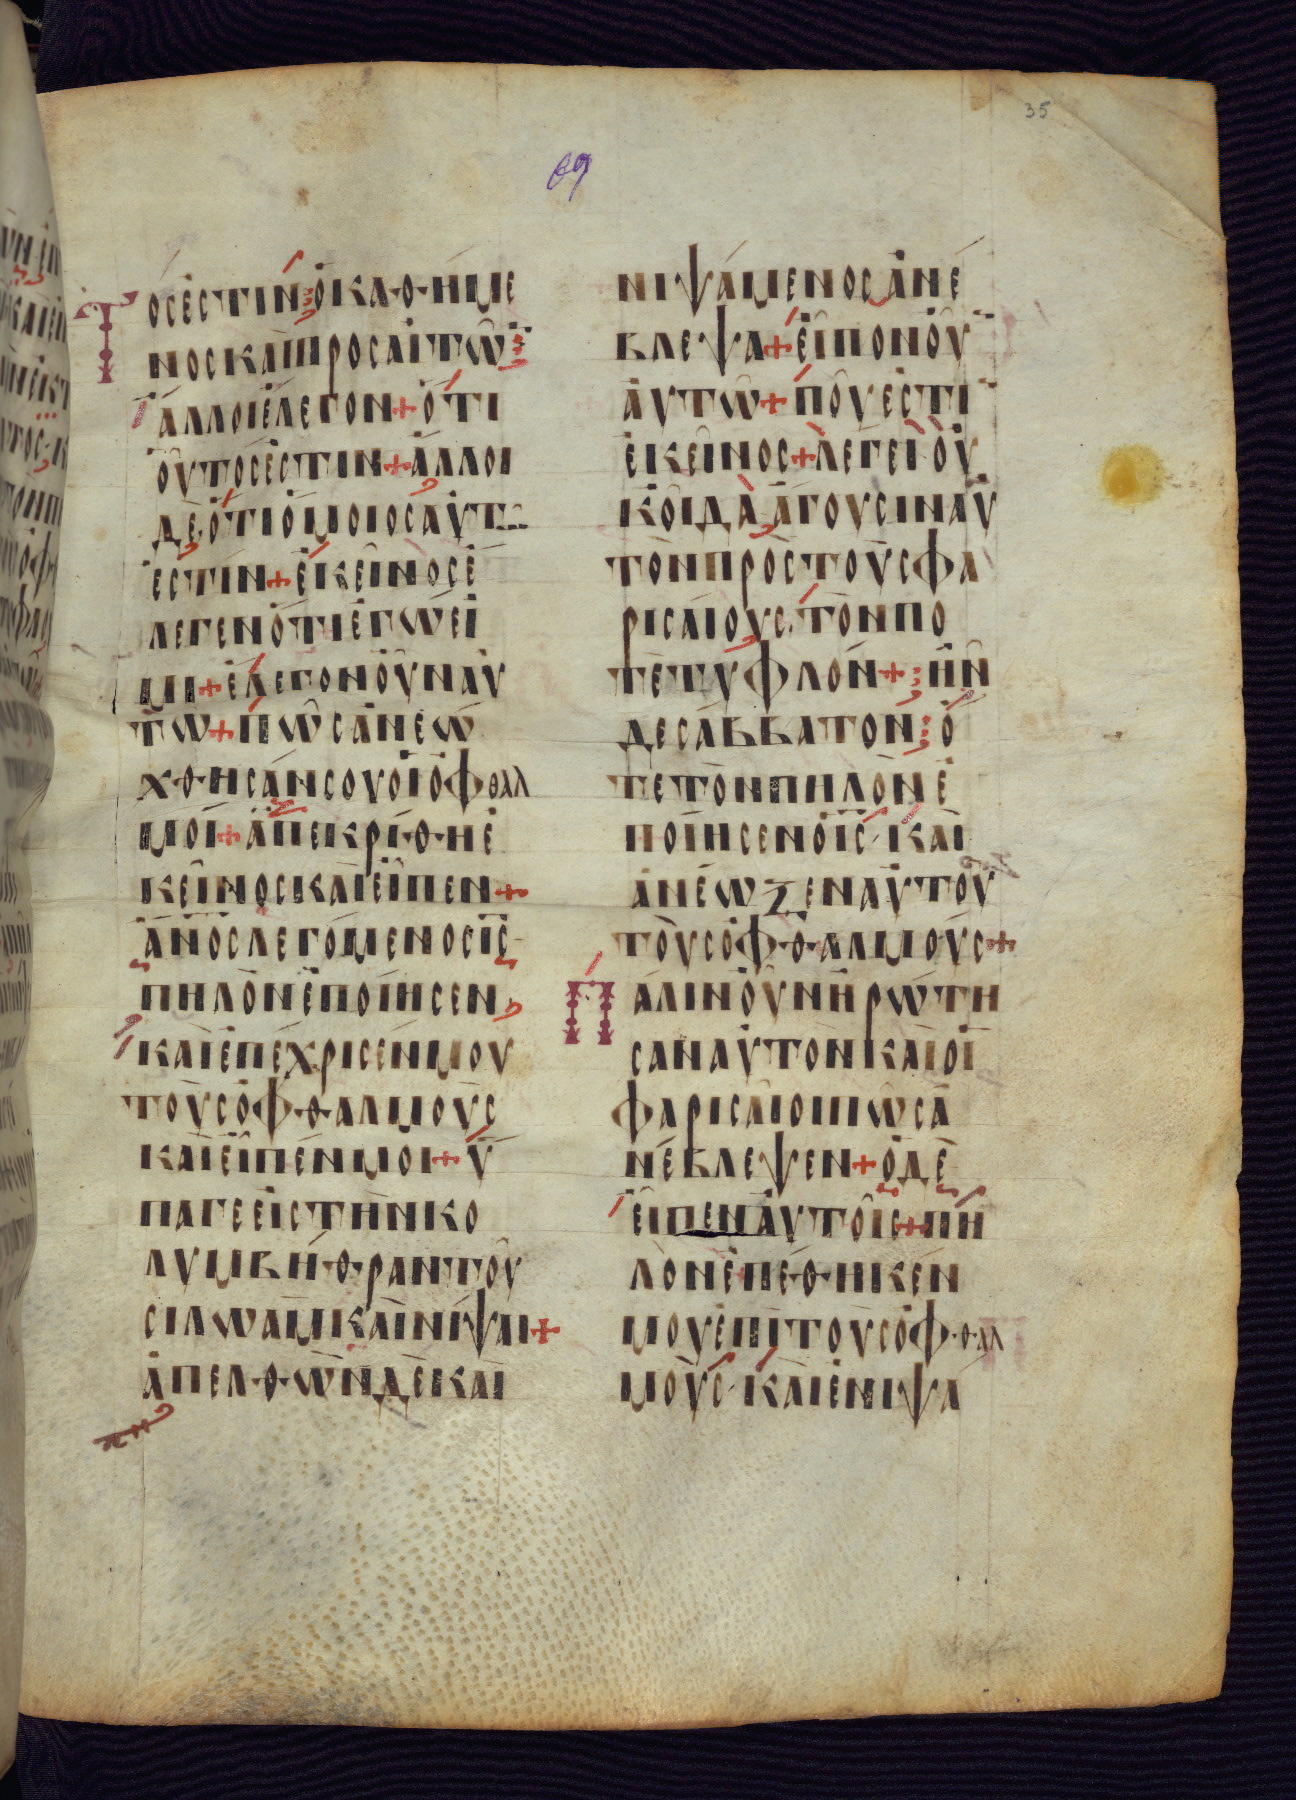 35
69
Τ ΟCΕCΤΙΝ ΟΚΑΘΗΜΕ
ΝΟCΚΑΙΠΡΟCΑΙΤΩ
ΑΛΛΟΙΕΛΕΓΟΝ + ΟΤΙ
ΟΥΤΟCΕCΤΙΝ + ΑΛΛΟΙ
ΔΕΟΤΙΟΜΟΙΟCΑΥΤ
ΕCΤΙΝ + ΕΚΕΙΝΟCΕ
ΛΕΓΕΝΟΤΙΕΓΩΕΙ
ΜΙ + ΕΛΕΓΟΝΟΥΝΑΥ
ΤΩ + ΠΩCΑΝΕΩ
ΧΘΗCΑΝCΟΥΟΙΟΦΘΑΛ
ΜΟΙ + ΑΠΕΚΡΙΘΗΕ
ΚΕΙΝΟCΚΑΙΕΙΠΕΝ +
ΑΝΟCΛΕΓΟΜΕΝΟCΙC
ΠΗΛΟΝΕΠΟΙΗCΕΝ
ΚΑΙΕΠΕΧΡΙCΕΝΜΟΥ
ΤΟΥCΟΦΘΑΛΜΟΥC
ΚΑΙΕΙΠΕΝΜΟΙ + Υ
ΠΑΓΕΕΙCΤΗΝΚΟ
ΛΥΜΒΗΘΡΑΝΤΟΥ
CΙΛΩΑΜΚΑΙΝΙΨΑΙ +
ΑΠΕΛΘΩΝΔΕΚΑΙ
ΝΙΨΑΜΕΝΟCΑΝΕ
ΒΛΕΨΑ + ΕΙΠΟΝΟΥ
ΑΥΤΩ + ΠΟΥΕCΤΙ
ΕΚΕΙΝΟC + ΛΕΓΕΙΟΥ
ΚΟΙΔΑ ΑΓΟΥCΙΝΑΥ
ΤΟΝΠΡΟCΤΟΥCΦΑ
ΡΙCΑΙΟΥC.ΤΟΝΠΟ
ΤΕΤΥΦΛΟΝ + ΗΝ
ΔΕCΑΒΒΑΤΟΝ Ο
ΤΕΤΟΝΠΗΛΟΝΕ
ΠΟΙΗCΕΝΟΙC ΚΑΙ
ΑΝΕΩΖΕΝΑΥΤΟΥ
ΤΟΥCΟΦΘΑΛΜΟΥC +
Π ΑΛΙΝΟΥΝΗΡΩΤΗ
CΑΝΑΥΤΟΝΚΑΙΟΙ
ΦΑΡΙCΑΙΟΙΠΩCΑ
ΝΕΒΛΕΨΕΝ + ΟΔΕ
ΕΙΠΕΝΑΥΤΟΙC + ΠΗ
ΛΟΝΕΠΕΘΗΚΕΝ
ΜΟΥΕΠΙΤΟΥCΟΦΘΑΛ
ΜΟΥC ΚΑΙΕΝΙΨΑ